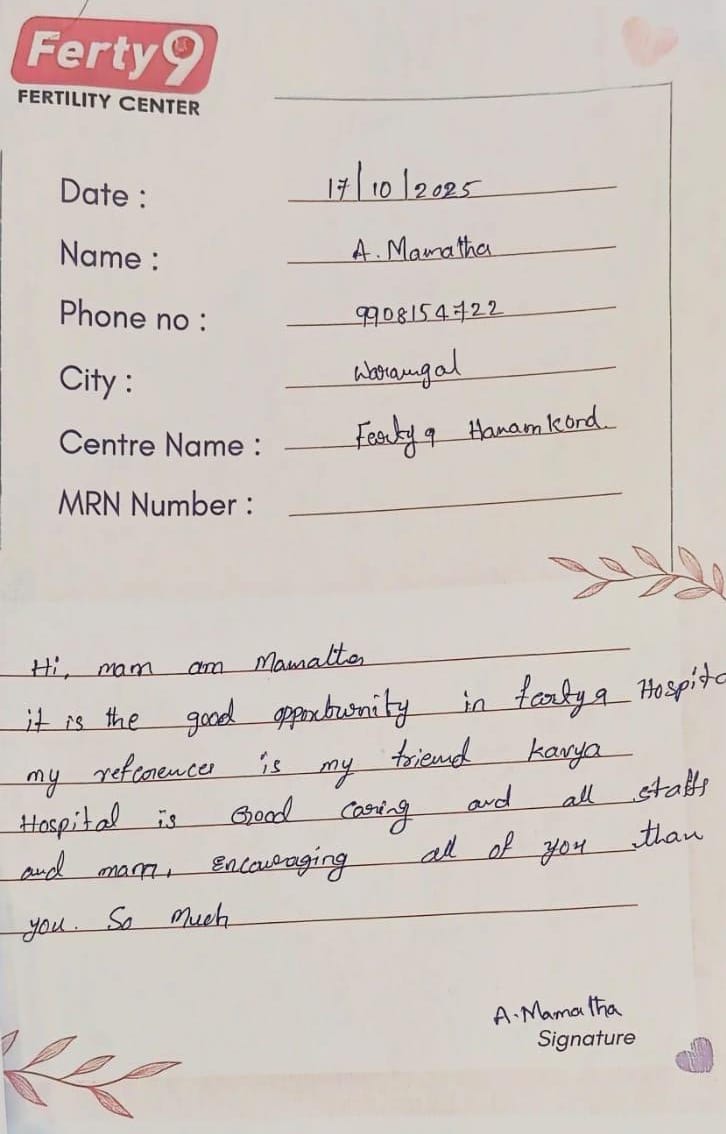 Ferty9
FERTILITY CENTER
Date : 17/10/2025
Name : A. Mamatha
Phone no : 9908154722
City : Warangal
Centre Name : Ferty 9 Hanamkord
MRN Number :
Hi, mam am Mamatha
it is the good opportunity in ferty 9 Hospita
my references is my friend kavya
Hospital is Good Caring and all staffs
and mam, Encouraging all of you than
you. So Much
A. Mamatha
Signature